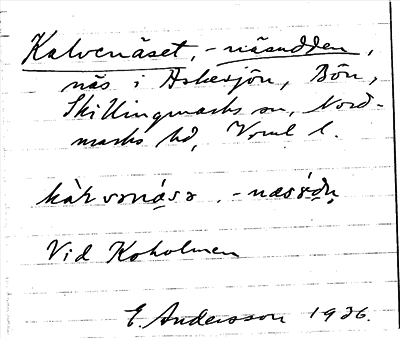 Kalvenäset, -näsudden,
näs i Askesjön, Bön,
Skillingmarks sn, Nord-
marks hd, Vrml l.
-
Vid Koholmen
E. Andersson 1936.